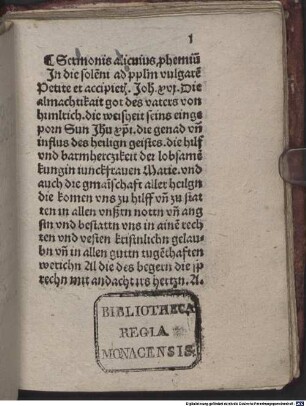 1
¶ Sermonis alicuius, phemiū
In die solēni ad pplm vulgarē
Petite et accipietꝭ. Joh. xvj. Die
almachtikait got des vaters von
himlrich. die weisheit seins einge
porn Sun Jhu xp̄i. die genad vn̄
influs des heilign geistes. die hilf
vnd barmherczikeit der lobsamē
kungin iunckfrauen Marie. vnd
auch die gmaīschaft aller heilgn
die komen vns zu hilff vn̄ zu stat
ten in allen vnßrn nottn vn̄ ang
sten vnd bestattn vns in ainē rech
ten vnd vesten kristnlichn gelau-
bn vn̄ in allen guttn tugēthaften
werichn Al die des begern die sp
rechn mit andacht irs hertzn. A.
BIBLIOTHECA
REGIA
MONACENSIS.